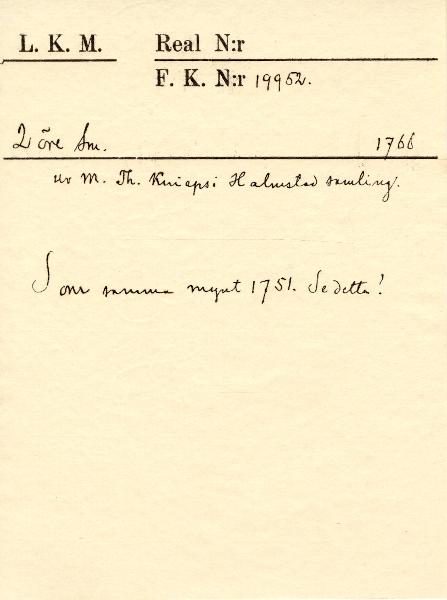 L. K. M. Real N:r
F. K. N:r 19952.
2 öre Sm. 1766
ur M. Th. Knieps i Halmstad samling.
Som samma mynt 1751. Se detta!